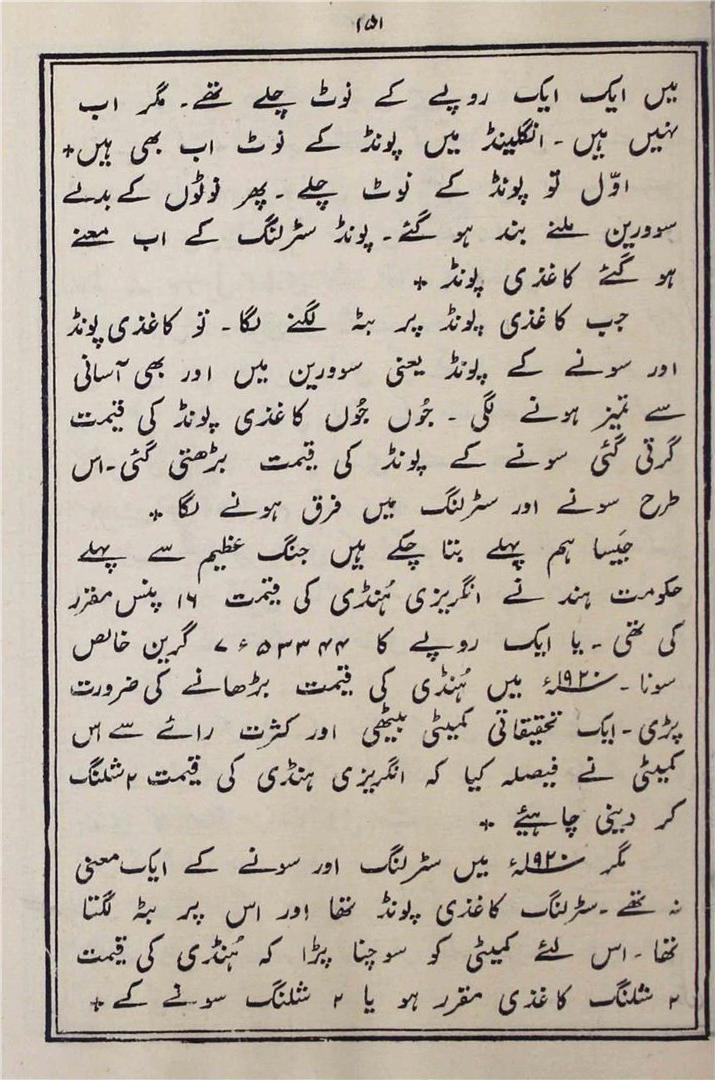 ۱۵۱
میں ایک ایک روپے کے نوٹ چلے تھے۔ مگر اب
نہیں ہیں۔ انگلینڈ میں پونڈ کے نوٹ اب بھی ہیں+
اوّل تو پونڈ کے نوٹ چلے۔ پھر نوٹوں کے بدلے
سوورین ملنے بند ہو گئے۔ پونڈ سٹرلنگ کے اب معنے
ہو گئے کاغذی پونڈ +
جب کاغذی پونڈ پر بٹہ لگنے لگا۔ تو کاغذی پونڈ
اور سونے کے پونڈ یعنی سوورین میں اور بھی آسانی
سے تمیز ہونے لگی۔ جُوں جُوں کاغذی پونڈ کی قیمت
گرتی گئی سونے کے پونڈ کی قیمت بڑھتی گئی۔ اس
طرح سونے اور سٹرلنگ میں فرق ہونے لگا +
جَیسا ہم پہلے بتا چکے ہیں جنگ عظیم سے پہلے
حکومت ہند نے انگریزی ہُنڈی کی قیمت ۱۶ پنس مقرر
کی تھی۔ یا ایک روپے کا ۷ء۵۳۳۴۴ گرین خالص
سونا۔ ۱۹۲۰ء میں ہُنڈی کی قیمت بڑھانے کی ضرورت
پڑی۔ ایک تحقیقاتی کمیٹی بیٹھی اور کثرت رائے سے اس
کمیٹی نے فیصلہ کیا کہ انگریزی ہنڈی کی قیمت ۲ شلنگ
کر دینی چاہیئے +
مگر ۱۹۲۰ء میں سٹرلنگ اور سونے کے ایک معنی
نہ تھے۔ سٹرلنگ کاغذی پونڈ تھا اور اس پر بٹہ لگتا
تھا۔ اس لئے کمیٹی کو سوچنا پڑا کہ ہُنڈی کی قیمت
۲ شلنگ کاغذی مقرر ہو یا ۲ شلنگ سونے کے +